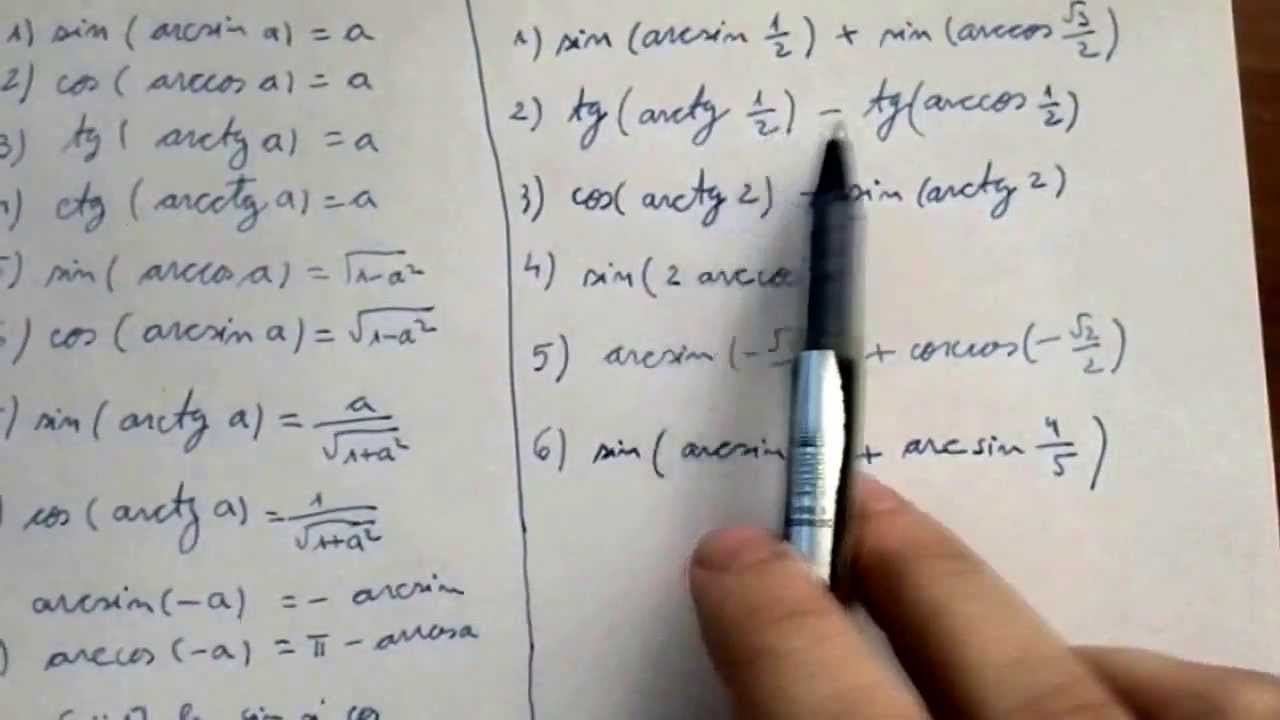 1) sin (arcsin a) = a
2) cos (arccos a) = a
3) tg (arctg a) = a
) ctg (arcctg a) = a
) sin (arccos a) = √1-a²
) cos (arcsin a) = √1-a²
) sin (arctg a) = a/√1+a²
) cos (arctg a) = 1/√1+a²
arcsin (-a) = - arcsin
) arccos (-a) = π - arccosa
1) sin (arcsin 1/2) + sin (arccos √3/2)
2) tg (arctg 1/2) - tg (arccos 1/2)
3) cos (arctg 2) sin (arctg 2)
4) sin (2 arcco
5) arcsin (-√ + (-√2/2)
6) sin (arcsin + arcsin 4/5)